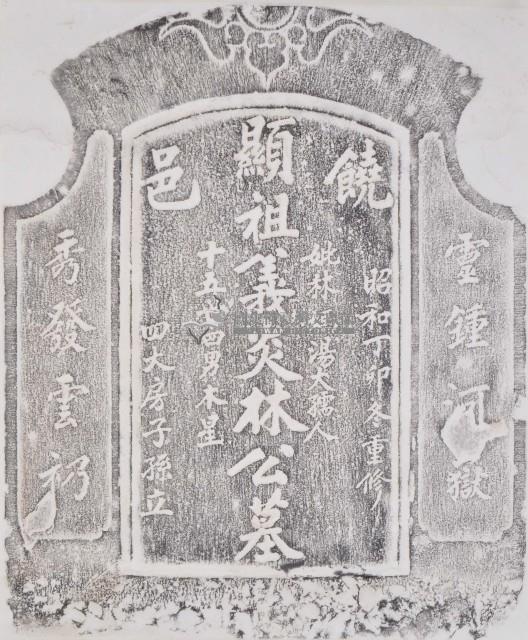 靈鍾河嶽
饒
昭和丁卯冬重修
妣林 湯大孺人
顯祖義炎林公墓
十五 四男木星
邑
四大房子孫立
秀發雲礽